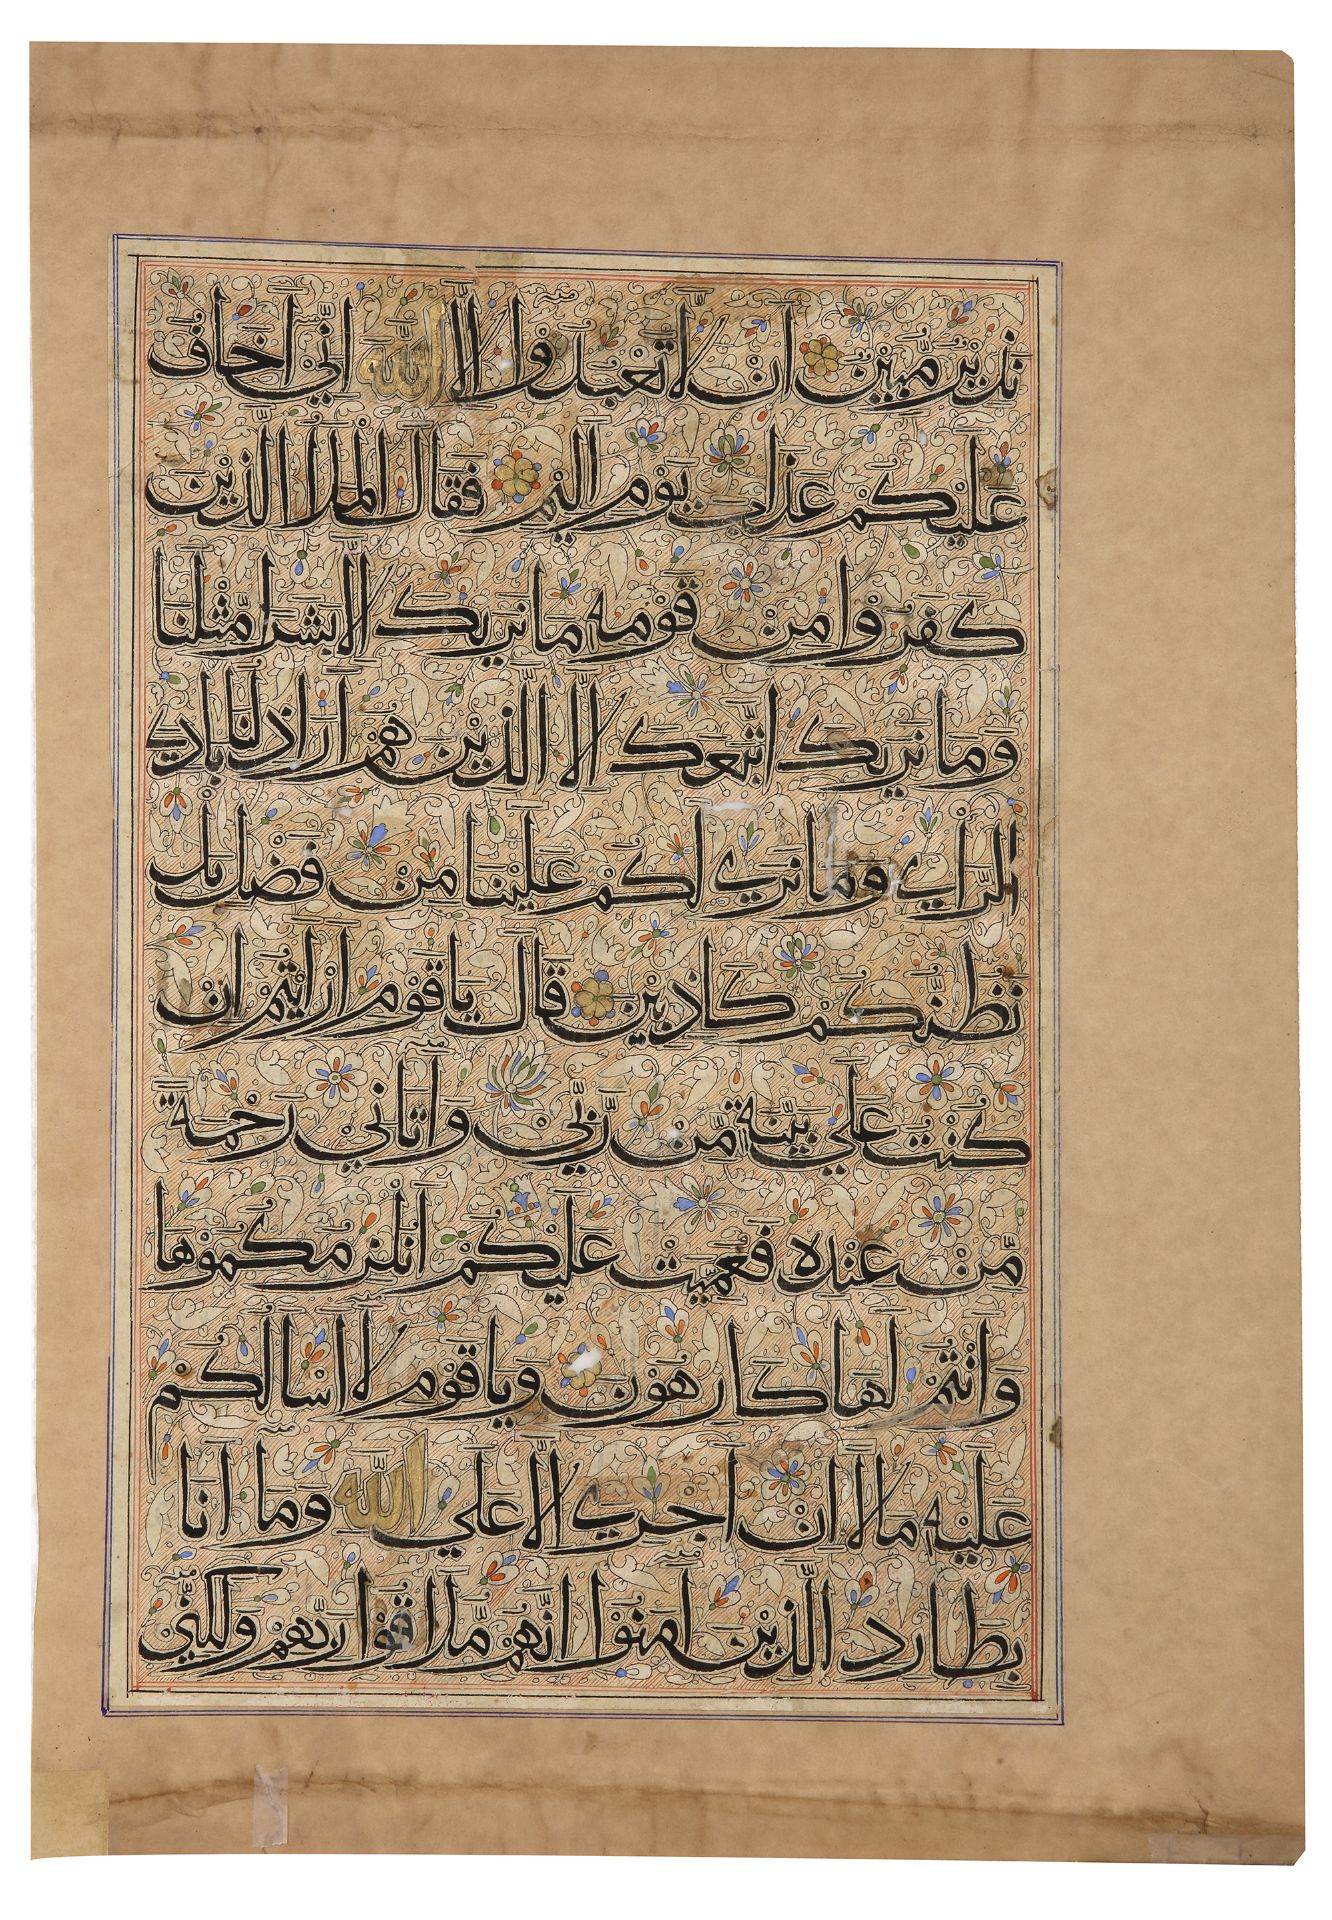 نَذِيرٌ مُّبِينٌ أَن لَّا تَعْبُدُوا إِلَّا اللَّهَ إِنِّي أَخَافُ
عَلَيْكُمْ عَذَابَ يَوْمٍ أَلِيمٍ فَقَالَ الْمَلَأُ الَّذِينَ
كَفَرُوا مِن قَوْمِهِ مَا نَرَيكَ إِلَّا بَشَرًا مِّثْلَنَا
وَمَا نَرَيكَ اتَّبَعَكَ إِلَّا الَّذِينَ هُمْ أَرَاذِلُنَا بَادِيَ
الرَّأْيِ وَمَا نَرَي لَكُمْ عَلَيْنَا مِن فَضْلٍ بَلْ
نَظُنُّكُمْ كَاذِبِينَ قَالَ يَاقَوْمِ أَرَأَيْتُمْ إِن
كُنتُ عَلَي بَيِّنَةٍ مِّن رَّبِّي وَآتَانِي رَحْمَةً
مِّنْ عِندِهِ فَعُمِّيَتْ عَلَيْكُمْ أَنُلْزِمُكُمُوهَا
وَأَنتُمْ لَهَا كَارِهُونَ وَيَاقَوْمِ لَا أَسْأَلُكُمْ
عَلَيْهِ مَالًا إِنْ أَجْرِيَ إِلَّا عَلَي اللَّهِ وَمَا أَنَا
بِطَارِدِ الَّذِينَ آمَنُوا إِنَّهُم مُّلَاقُوا رَبِّهِمْ وَلَكِنِّي